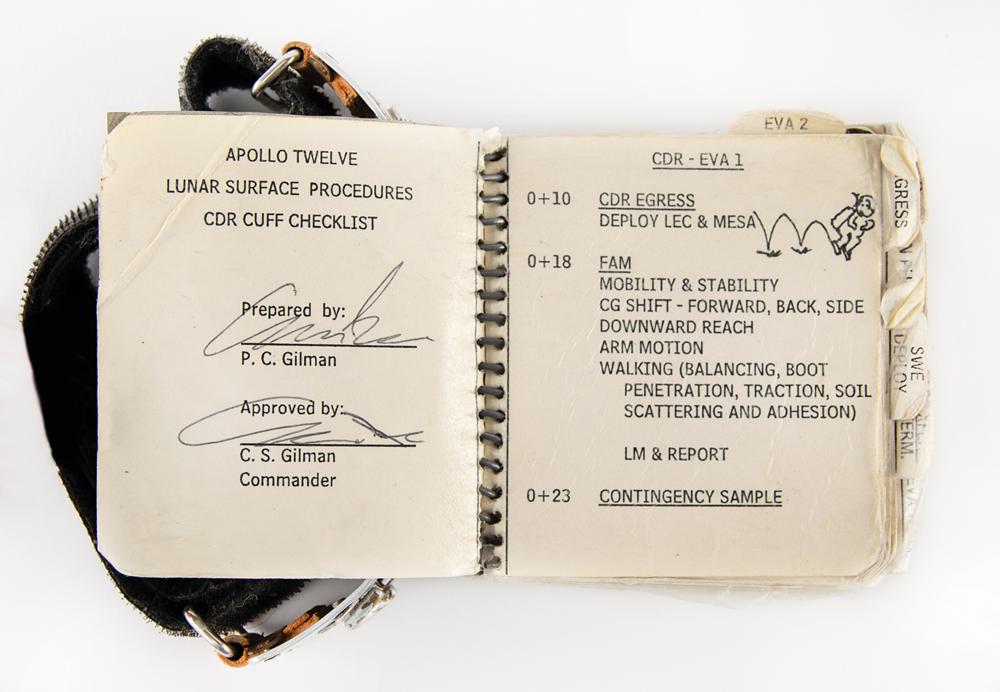 APOLLO TWELVE
LUNAR SURFACE PROCEDURES
CDR CUFF CHECKLIST
Prepared by:
P. C. Gilman
Approved by:
C. S. Gilman
Commander
EVA 2
CDR - EVA 1
0+10 CDR EGRESS
DEPLOY LEC & MESA
0+18 FAM
MOBILITY & STABILITY
CG SHIFT - FORWARD, BACK, SIDE
DOWNWARD REACH
ARM MOTION
WALKING (BALANCING, BOOT
PENETRATION, TRACTION, SOIL
SCATTERING AND ADHESION)
LM & REPORT
0+23 CONTINGENCY SAMPLE
GRESS
SWE
DEPLOY
ERM.